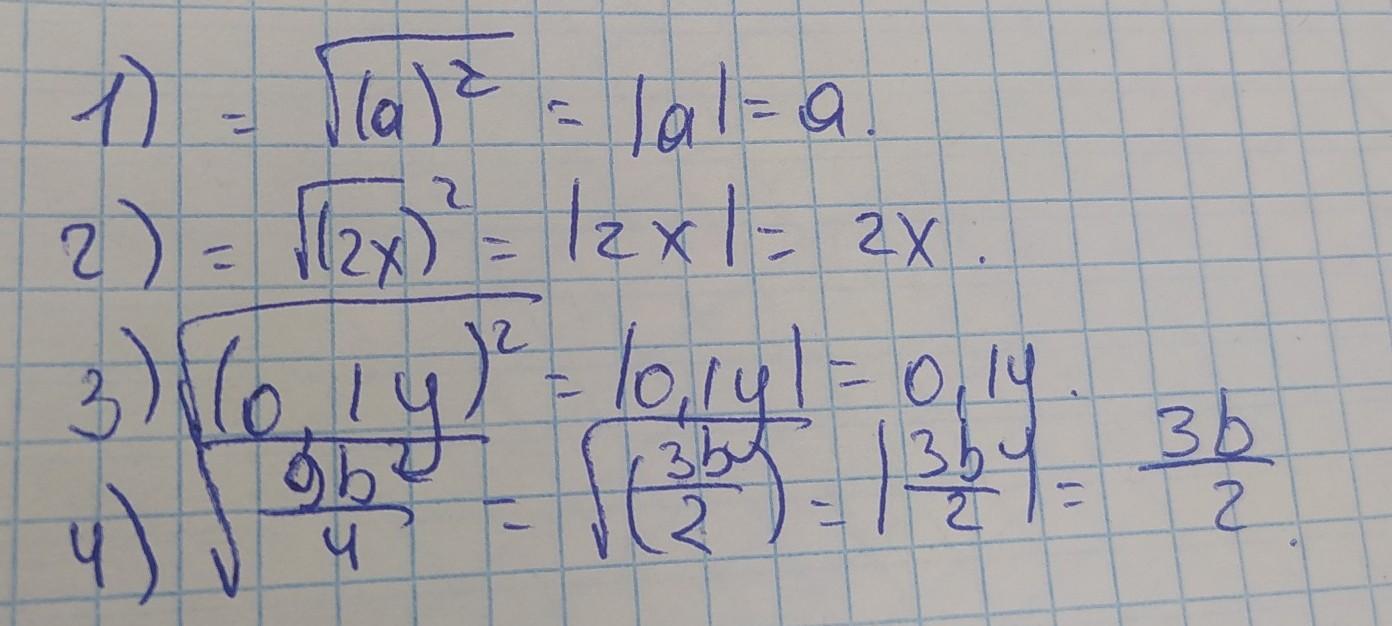 1) = √(a)² = |a| = a.
2) = √(2x)² = |2x| = 2x.
3) √(0,1y)² = |0,1y| = 0,1y.
4) √9b²/4 = √(3b/2) = |3b/2| = 3b/2.